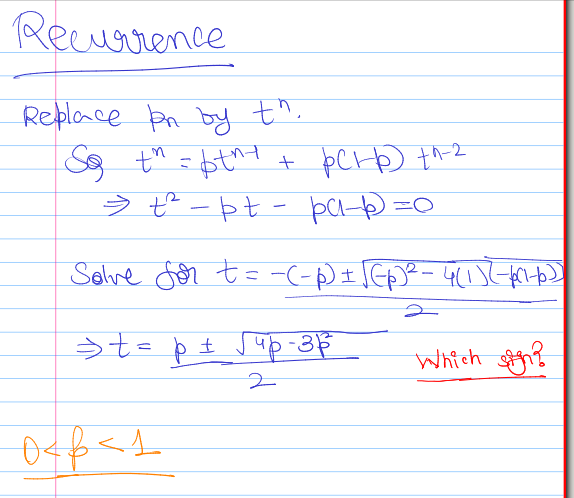 Recurrence
Replace pn by tⁿ.
So tⁿ = ptⁿ⁻¹ + p(1-p) tⁿ⁻²
⇒ t² - pt - p(1-p) = 0
Solve for t = -(-p) ± √(-p)² - 4(1)(-p(1-p))
2
⇒ t = p ± √4p - 3p²
2
Which sign?
0 < p < 1